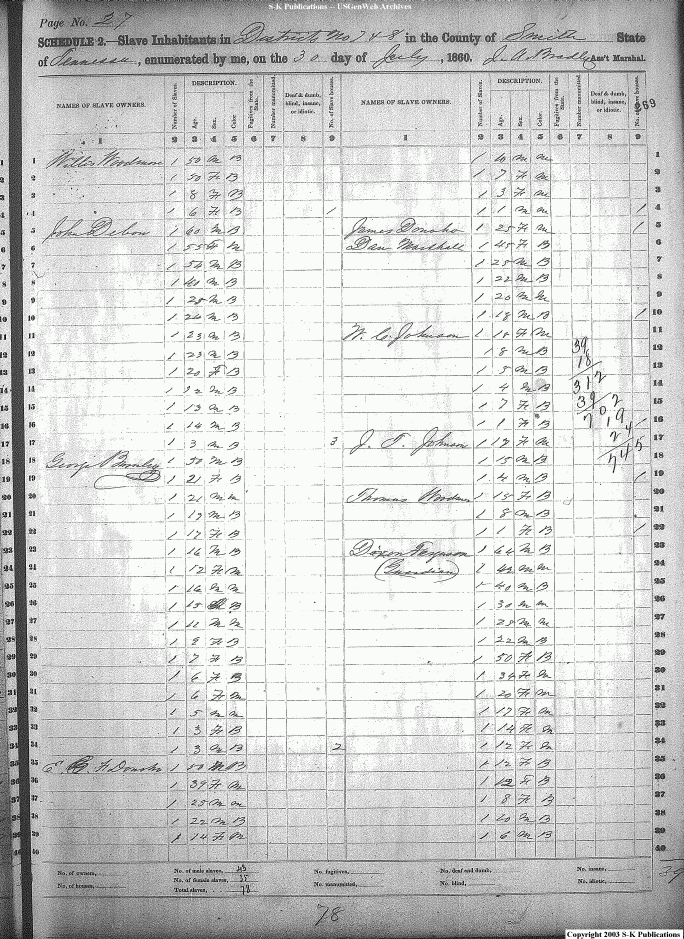 S-K Publications -- USGenWeb Archives
Page No. 27
SCHEDULE 2.—Slave Inhabitants in Districts No 7 & 8 in the County of Smith State
of Tennessee, enumerated by me, on the 30 day of July, 1860. J. A. Bradley Ass't Marshal.
NAMES OF SLAVE OWNERS. Number of Slaves. DESCRIPTION. Age. Sex. Color. Fugitives from the State. Number manumitted. Deaf & dumb, blind, insane, or idiotic. No. of Slave houses. NAMES OF SLAVE OWNERS. Number of Slaves. DESCRIPTION. Age. Sex. Color. Fugitives from the State. Number manumitted. Deaf & dumb, blind, insane, or idiotic. No. of Slave houses.
1 2 3 4 5 6 7 8 9 1 2 3 4 5 6 7 8 9
1 Willis Woodmore 1 50 M B 1 40 M M 1
2 1 50 F B 1 7 F M 2
3 1 8 F B 1 3 F M 3
4 1 6 F B 1 1 1 M M 1 4
5 John Debow 1 60 M B James Donoho 1 25 F M 1 5
6 1 55 F M Dan Marshall 1 45 F B 6
7 1 54 M B 1 25 M B 7
8 1 40 M B 1 22 M B 8
9 1 28 M B 1 20 M M 9
10 1 24 M B 1 18 M B 1 10
11 1 23 M B W. C. Johnson 1 18 F M 11
12 1 23 M B 1 8 M B 39 12
13 1 20 F B 1 5 M B 18 13
14 1 12 M B 1 4 M B 312 14
15 1 13 M B 1 7 F B 39 15
16 1 14 M B 1 1 F B 702 19 1 16
17 1 3 M B 3 J. T. Johnson 1 17 F M 24 17
18 George 1 50 M B 1 15 M B 745 18
19 1 21 F B 1 4 M B 1 19
20 1 21 M M Thomas Woodmore 1 15 F B 20
21 1 19 M B 1 8 M B 21
22 1 17 F B 1 1 F B 1 22
23 1 16 M B Dixon Ferguson 1 64 M B 23
24 1 12 F M (Guardian) 1 42 M M 24
25 1 16 M M 1 40 M B 25
26 1 15 B 1 30 M M 26
27 1 11 M M 1 28 M M 27
28 1 8 F B 1 22 M B 28
29 1 7 F B 1 50 F B 29
30 1 6 F B 1 34 F M 30
31 1 6 F M 1 20 F M 31
32 1 5 M M 1 17 F M 32
33 1 3 F B 1 14 F M 33
34 1 3 M B 2 1 12 F M 34
35 E F Donoho 1 50 M B 1 12 F B 35
36 1 39 F M 1 12 F B 36
37 1 25 M M 1 8 F B 37
38 1 22 M B 1 20 M B 38
39 1 14 F M 1 6 M B 39
40 40
No. of owners, No. of male slaves, 43 No. fugitives, No. deaf and dumb, No. insane,
No. of houses, No. of female slaves, 35 No. manumitted, No. blind, No. idiotic,
Total slaves, 78
78
Copyright 2003 S-K Publications